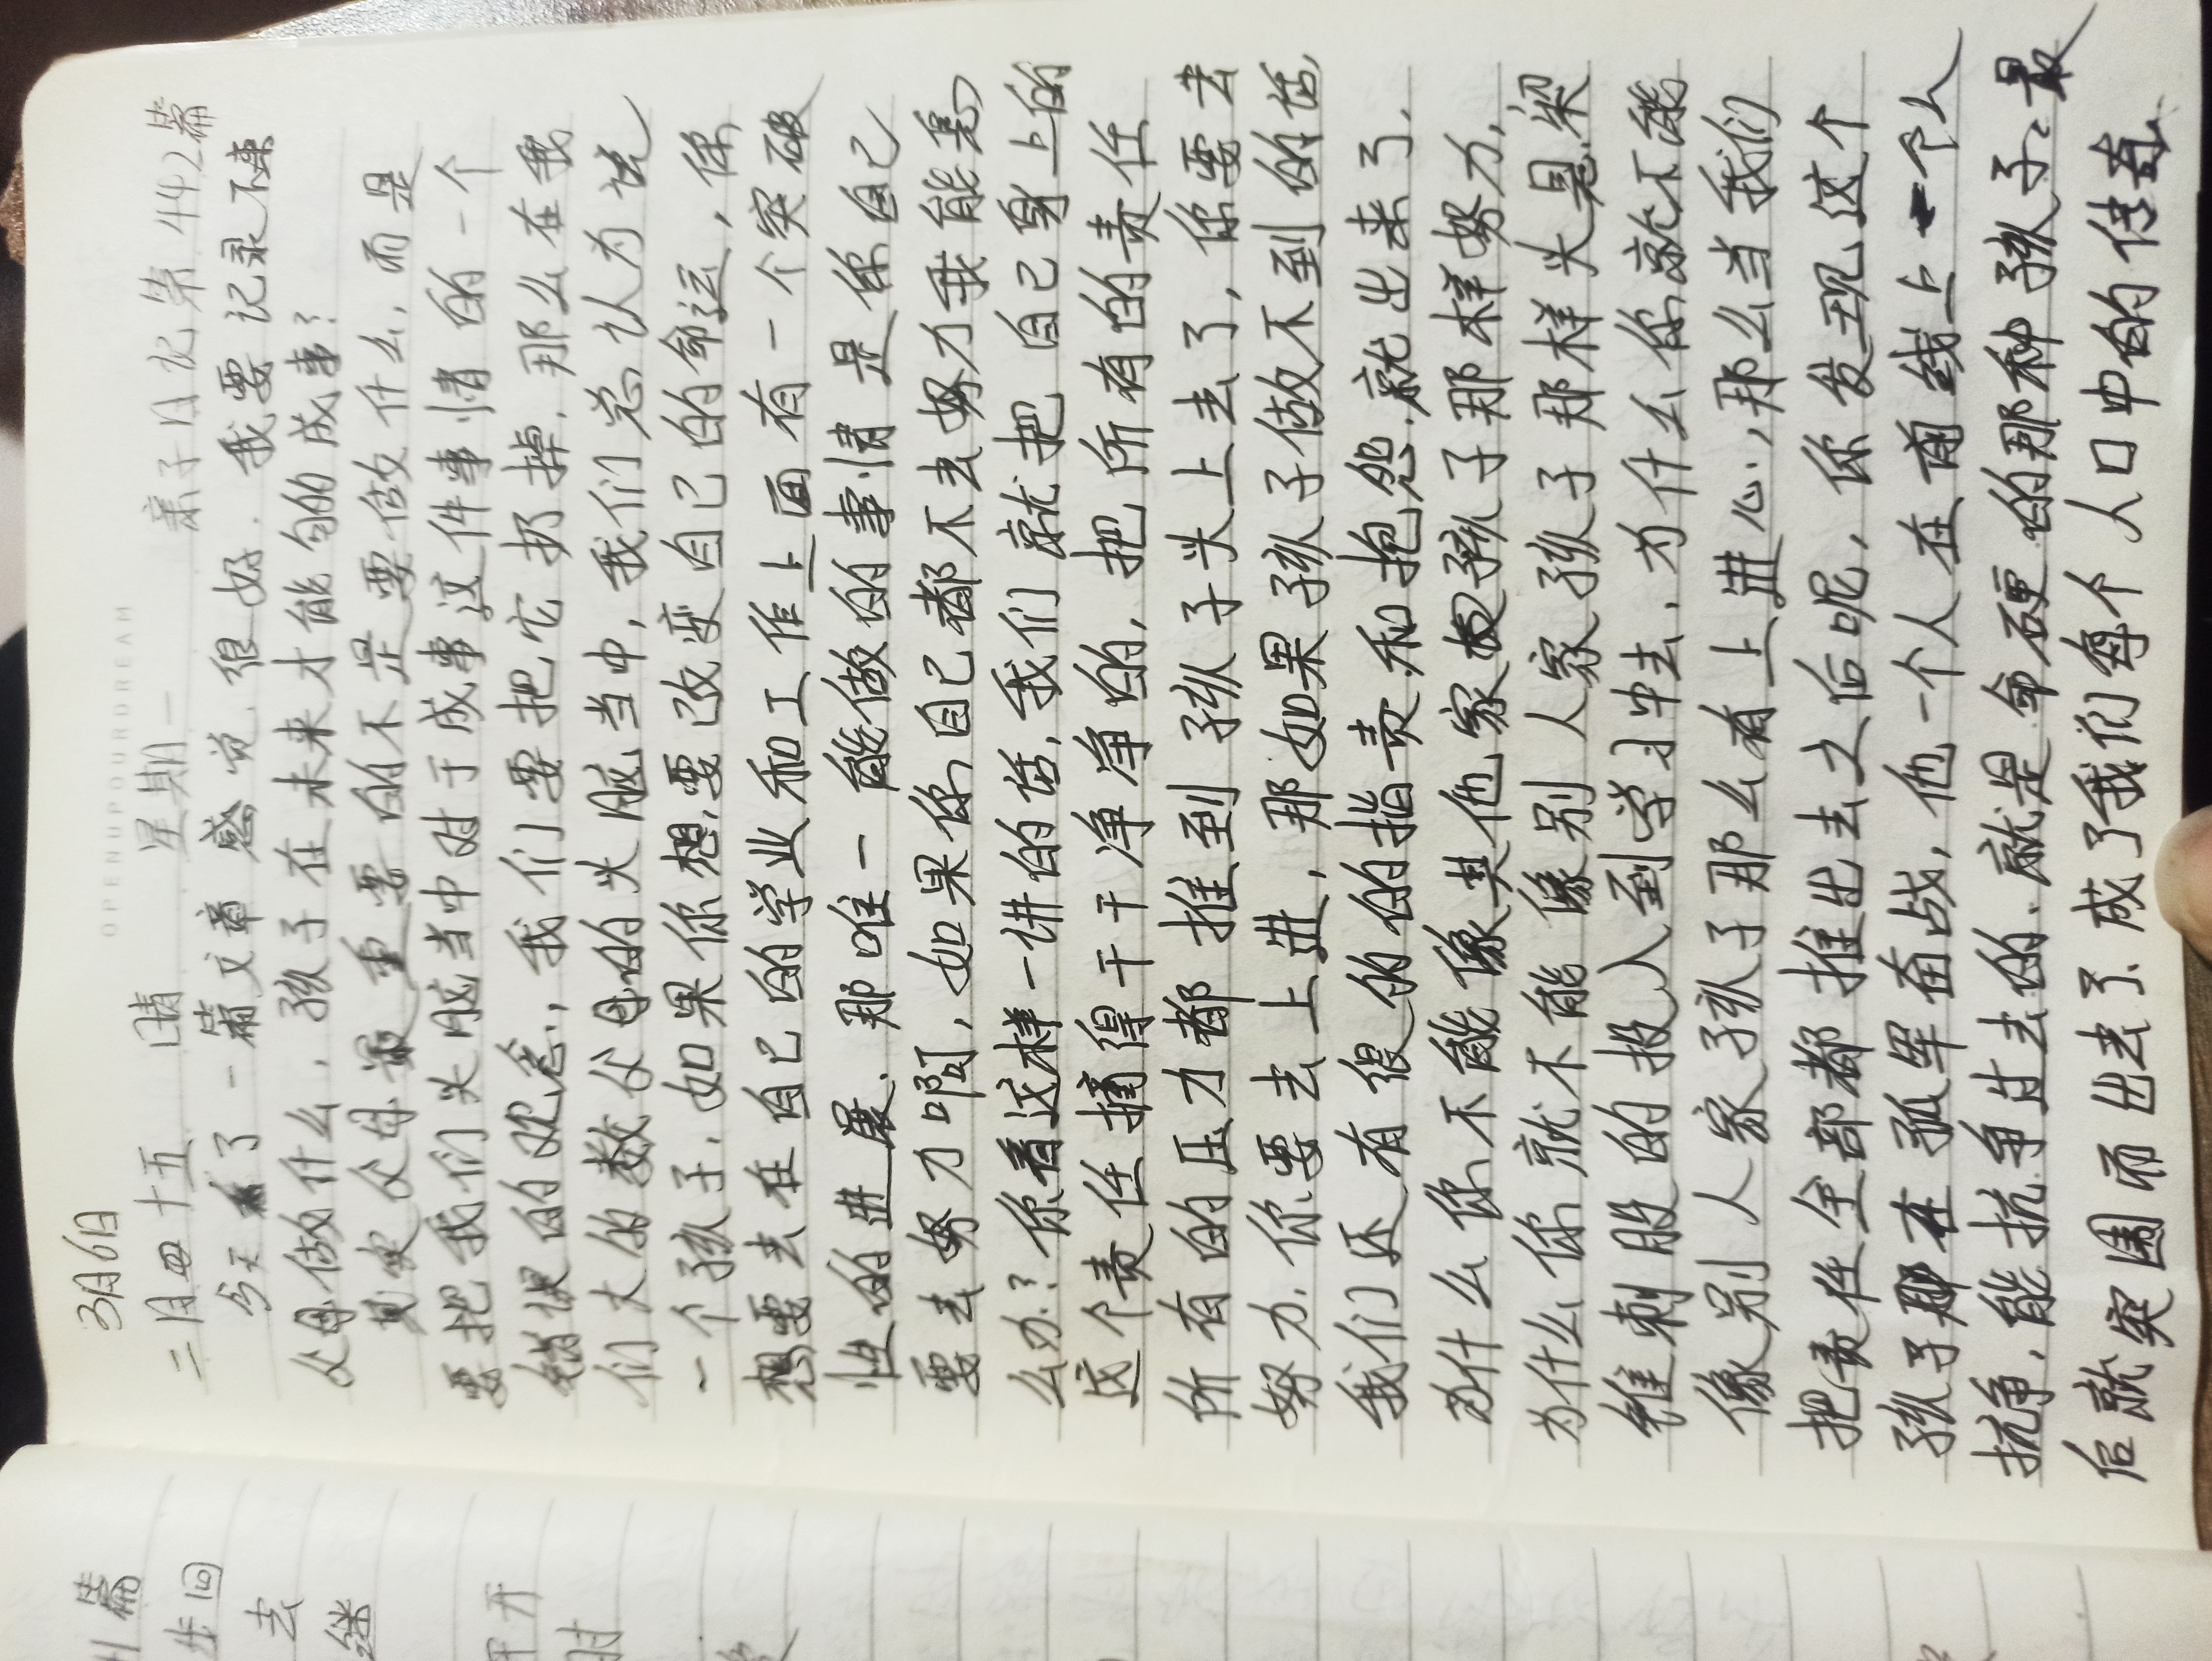 OPENUPOURDREAM
3月6日
二月四十五 晴 星期一 亲子日记第442篇
今天看了一篇文章感觉很好.我要记录下来
父母做什么,孩子在未来才能够的成事?
其实父母最重要的不是要做什么,而是
要把我们头脑当中对于成事这件事情的一个
错误的观念,我们要把它扔掉.那么在我
们大的数父母的头脑当中,我们总认为说
一个孩子,如果你想,要改变自己的命运,你
想要去在自己的学业和工作上面有一个突破
性的进展.那唯一能做的事情是你自己
要去努力啊,如果你自己都不去努力我能怎
么办?你看这样一讲的话,我们就把自己身上的
这个责任摘得干干净净的,把所有的责任
所有的压力都推到孩子头上去了,你要去
努力.你要去上进,那如果孩子做不到的话,
我们还有很的的指责和抱怨.就出来了.
为什么你不能像其他家孩子那样努力,
为什么你就不能像别人家孩子那样头悬梁
锥刺股的投入到学习中去.为什么你就不能
像别人家孩子那么有上进心,那么当我们
把责任全部都推出去之后呢,你发现这个
孩子那在孤军奋战,他一个人在前线上一个人
抗争,能抗争过去的.就是命硬的那种孩子.最
后就突围而出去了.成了我们每个人口中的传奇.
篇
步回
去
继
开
时